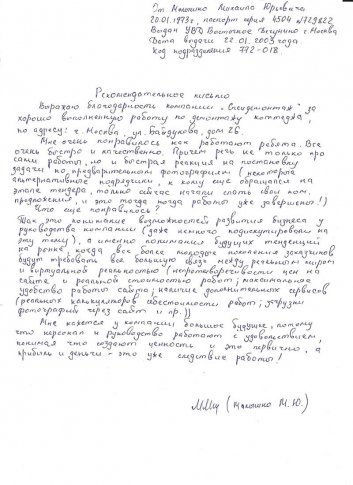 От Малошко Михаила Юрьевича
20.01.1973 г., паспорт серия 4504 №729822
Выдан УВД Восточное Дегунино г. Москва
Дата выдачи 22.01.2003 года
код подразделения 772-018.
Рекомендательное письмо
Выражаю благодарность компании "Снесидемонтаж" за
хорошо выполненную работу по демонтажу коттеджа,
по адресу: г. Москва, ул. Байдукова, дом 26.
Мне очень понравилось как работают ребята. Все
очень быстро и качественно. Причем речь не только про
сами работы, но и быстрая реакция на постановку
задачи по предварительным фотографиям (некоторые
альтернативные подрядчики, к кому еще обращался на
этапе тендера, только сейчас начали слать свои ком.
предложения, и это тогда когда работы уже завершены!)
Что еще понравилось?
Так, это понимание возможностей развития бизнеса у
руководства компании (даже немного подискутировали на
эту тему), а именно понимания будущих тенденций
на рынке, когда все более молодые поколения заказчиков
будут требовать все большую связь между реальным миром
и виртуальной реальностью (непротиворечивости цен на
сайте и реальной стоимостью работ; максимальное
удобство работы сайта; наличие дополнительных сервисов
(реальных калькуляторов себестоимости работ; загрузки
фотографий через сайт и пр.))
Мне кажется у компании большое будущее, потому
что персонал и руководство работают с удовольствием,
понимая что создают ценности и это первично, а
прибыль и деньги - это уже следствие работы!
(Малошко М. Ю.)